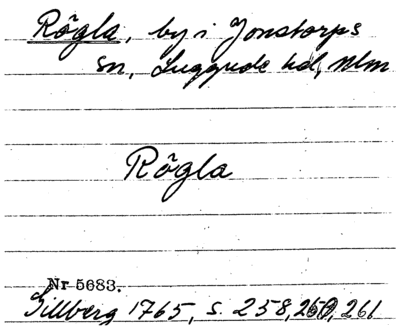 Rögla, by i Jonstorps
sn, Luggude hd, Mlm
Rögla
Nr 5683.
Gillberg 1765, s. 258, 260, 261